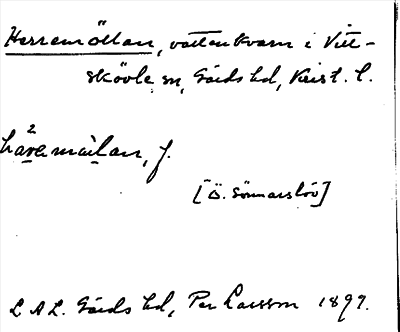 Herremöllan, vattenkvarn i Vitt-
skövle sn, Gärds hd, Krist. l.
häremölan, f.
[Ö. Sönnarslöv]
LAL. Gärds hd, Per Larsson 1897.